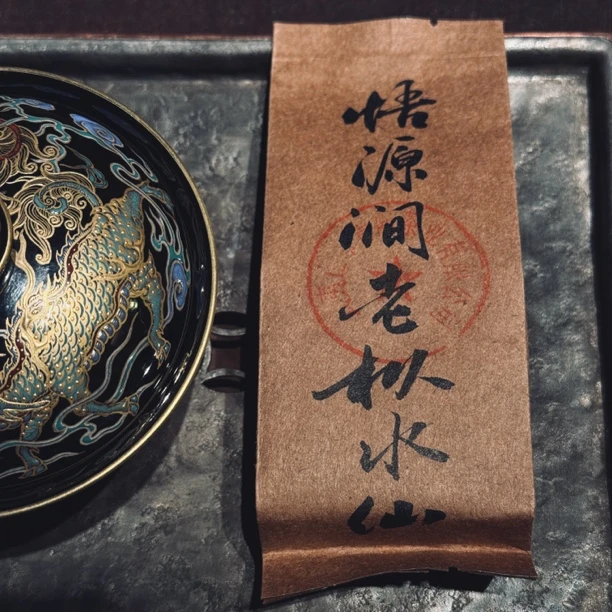 悟源涧老枞水仙